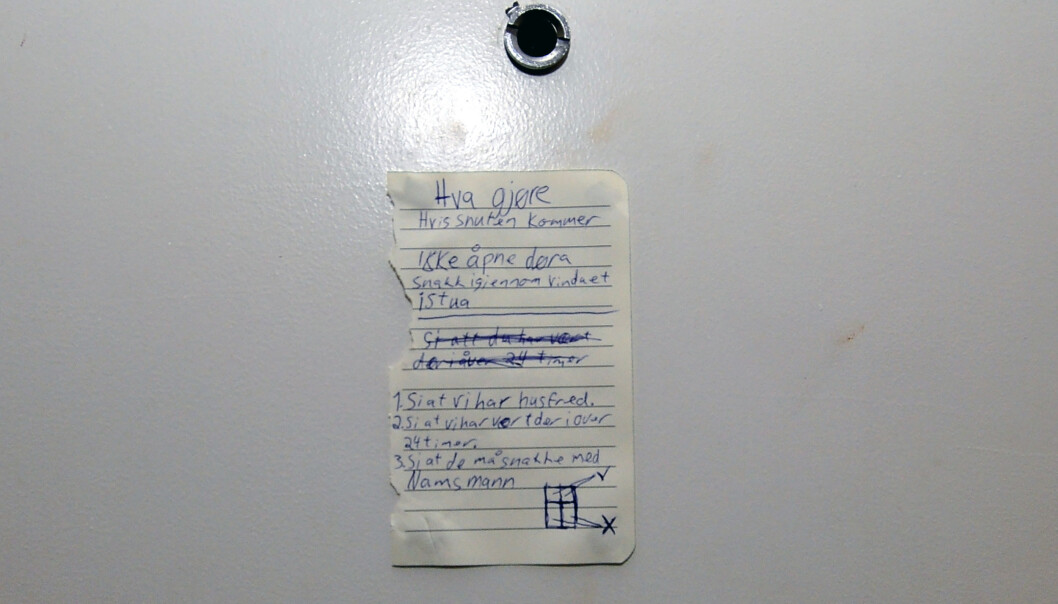 Hva gjøre
Hvis snuten kommer
ikke åpne døra
snakk igjennom vinduet
i stua
Si att du har vært
der i över 24 timer
1. Si at vi har husfred.
2. Si at vi har vørt der i over
24 timer.
3. Si at de må snakke med
Namsmann